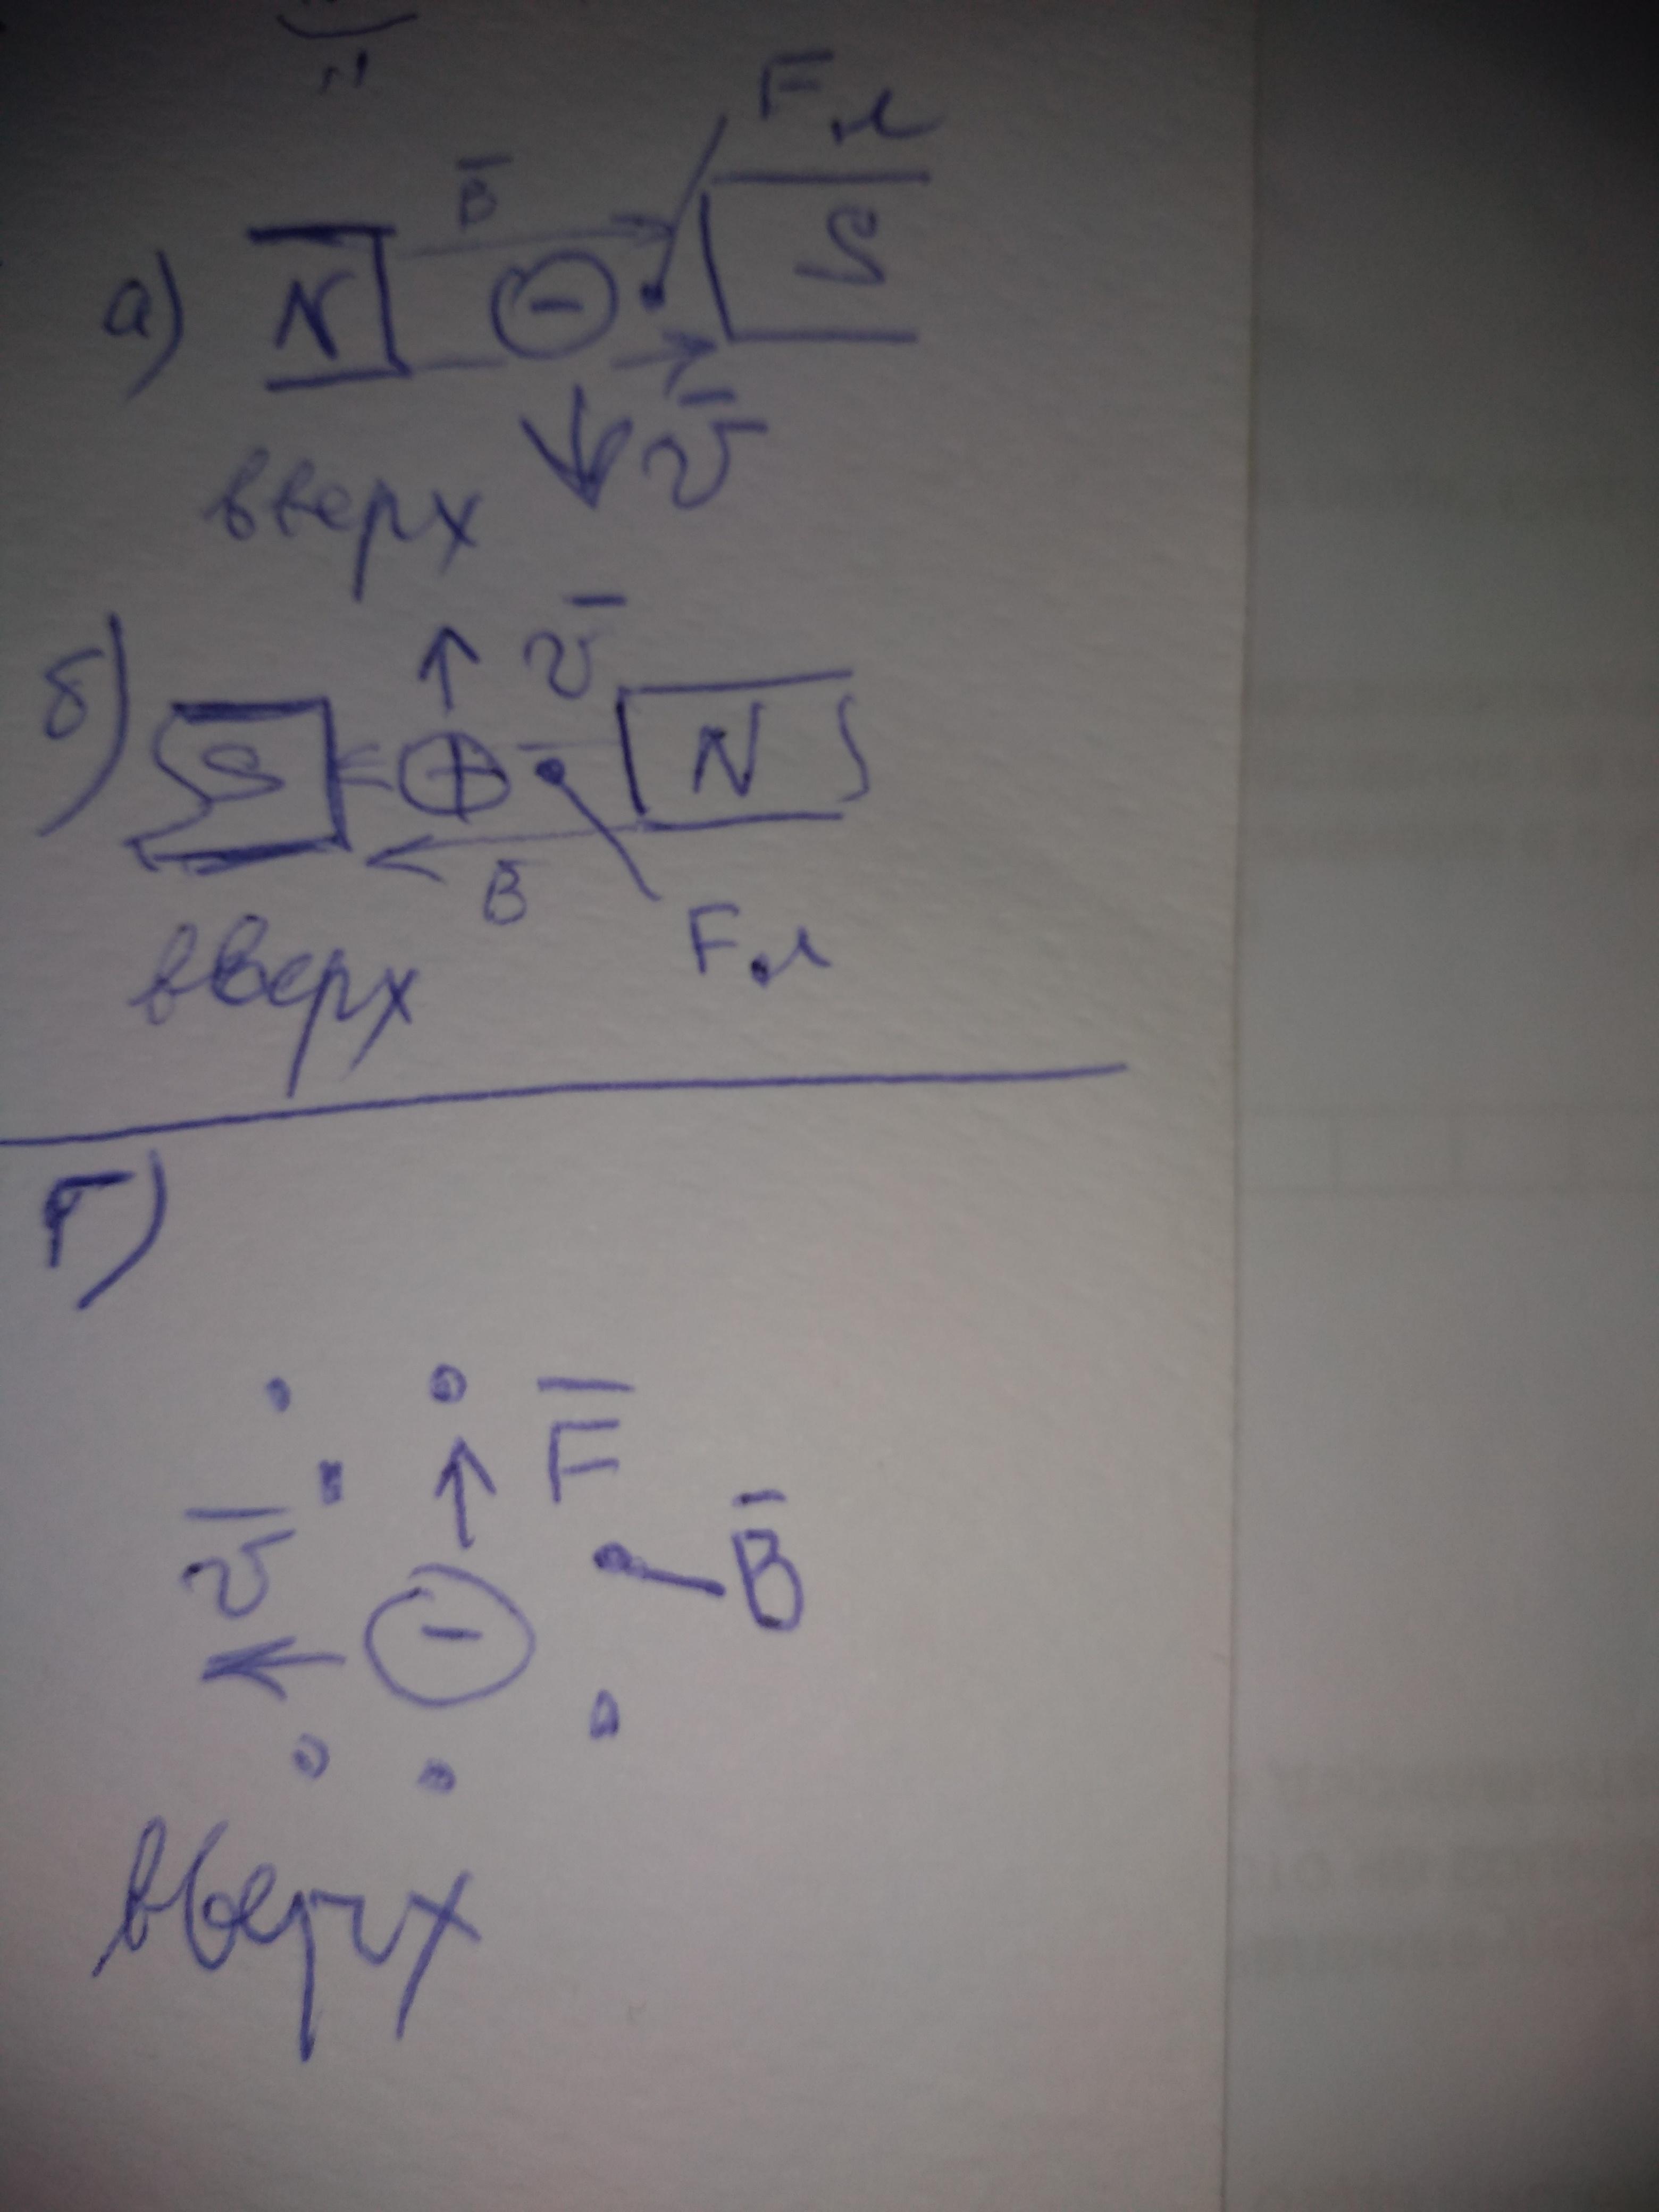 F л
B
а) N − S
v
вверх
б) v
S + N
B
F л
вверх
г)
F
v B
−
вверх